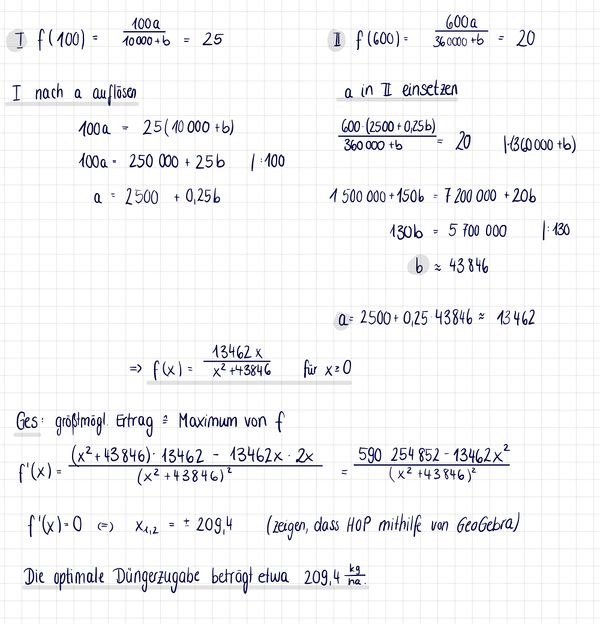 I f(100) = 100a / 10000+b = 25
I nach a auflösen
100a = 25(10 000 + b)
100a = 250 000 + 25b |:100
a = 2500 + 0,25b
II f(600) = 600a / 360000+b = 20
a in II einsetzen
600·(2500+0,25b) / 360000+b = 20 |·(360000+b)
1 500 000 + 150b = 7 200 000 + 20b
130b = 5 700 000 |:130
b ≈ 43846
a = 2500 + 0,25·43846 ≈ 13462
=> f(x) = 13462x / x²+43846 für x≥0
Ges: größtmögl. Ertrag ≙ Maximum von f
f'(x) = (x²+43846)·13462 - 13462x·2x / (x²+43846)² = 590 254 852 - 13462x² / (x²+43846)²
f'(x)=0 <=> x₁,₂ = ± 209,4 (zeigen, dass HOP mithilfe von GeoGebra)
Die optimale Düngerzugabe beträgt etwa 209,4 kg/ha.